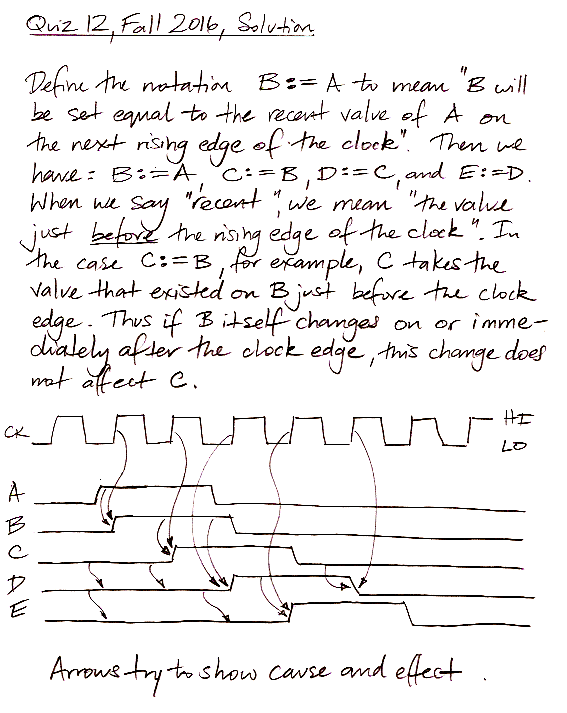 Quiz 12, Fall 2016, Solution
Define the notation B:=A to mean "B will
be set equal to the recent value of A on
the next rising edge of the clock". Then we
have: B:=A, C:=B, D:=C, and E:=D.
When we say "recent", we mean "the value
just before the rising edge of the clock". In
the case C:=B, for example, C takes the
value that existed on B just before the clock
edge. Thus if B itself changes on or imme-
diately after the clock edge, this change does
not affect C.
CK HI
LO
A
B
C
D
E
Arrows try to show cause and effect.